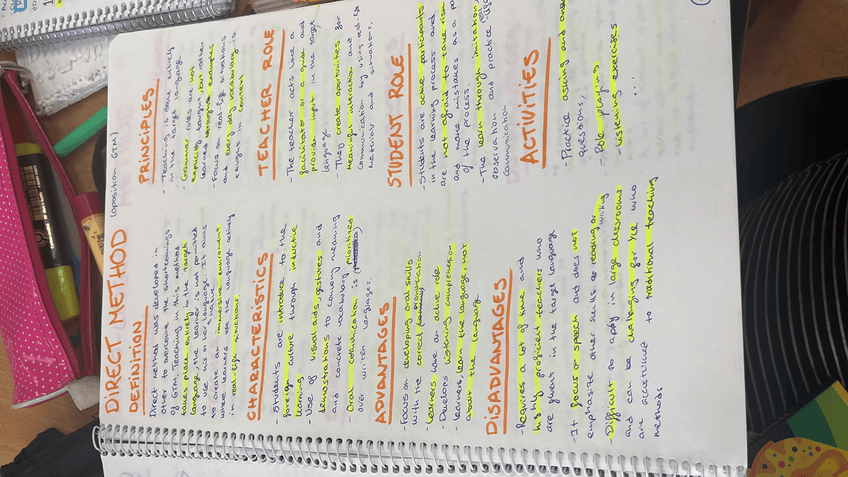 DIRECT METHOD (oposition GTM)
DEFINITION
Direct method was developed in
other to overcome the shortcomings
of GTM. Teaching in this method
takes place entirely in the target
language. The learner is not permitted
to use his or her language. It aims
to create an immersive environment
where learners use the language actively
in real-life situations.
CHARACTERISTICS
- Students are introduce to the
foreign culture through inductive
learning
- Use of visual aids, gestures and
demonstrations to convey meaning
and concrete vocabulary
- Oral communication is prioritized
over written languages.
ADVANTAGES
- Focus on developing oral skills
with the correct pronunciation
- Learners had an active role
- Develops listening comprehension
- Learners learn the language, not
about the language
DISADVANTAGES
- Requires a lot of time and
highly proficient teachers who
are fluent in the target language
- It focus on speech and does not
emphasize other skills as reading or writing
- Difficult to apply in large classrooms
and can be challenging for the who
are acustumed to traditional teaching
methods
PRINCIPLES
- Teaching is done entirely
in the target language.
- Grammar rules are not
explicitly taught, but rather
learned through examples
- Focus on real-life situations
and every day vocabulary is
taught in context
TEACHER ROLE
- The teacher acts like a
facilitator or a guide and
provides input in the target
language
- They create oportunities for
meaningful interaction and
communication by using real-life
materials and situations.
STUDENT ROLE
- Students are active participants
in the learning process and
are not afraid to take risk
and make mistakes as a
of the process.
- The learn through imitation,
observation and practice
communication
ACTIVITIES
- Practice asking and
questions,
- Role playings
- Listening exercises
...